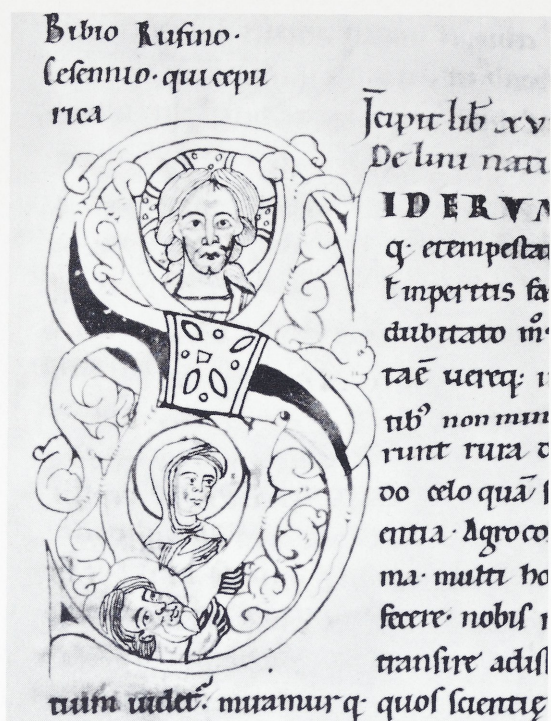 Bibio Rufino·
Cesennio· qui cepu
rica
Īcipit lib̄ xv
De lini nati
SIDERV
q· et tempesta
t imperitis fa
dubitato m̊·
taē uereq·
tib' non min
runt rura
do celo quā
entia· Agroco
ma· multi ho
fecere· nobis
transire adis
tium uidet᷑. miramurq· quos scientię